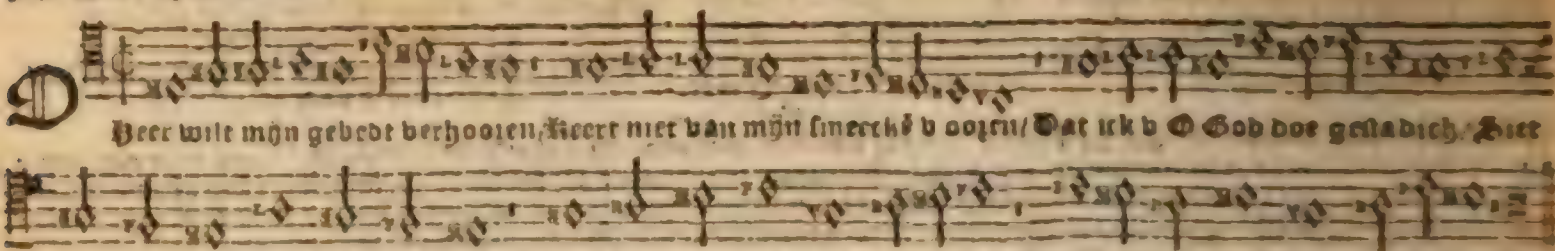 O
Heer wilt mijn gebedt verhooren, Keert niet van mijn smerckē v ooren/ Dat ick v O God doe gestadich, Siet